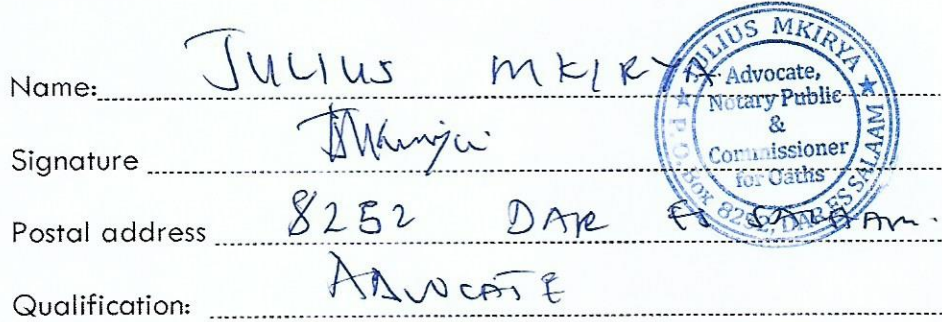 Name: JULIUS MKIRYA
Signature
Postal address 8252 DAR ES SALAAM.
Qualification: ADVOCATE
JULIUS MKIRYA
Advocate,
Notary Public
&
Commissioner
for Oaths
P.O. Box 8252, DAR ES SALAAM